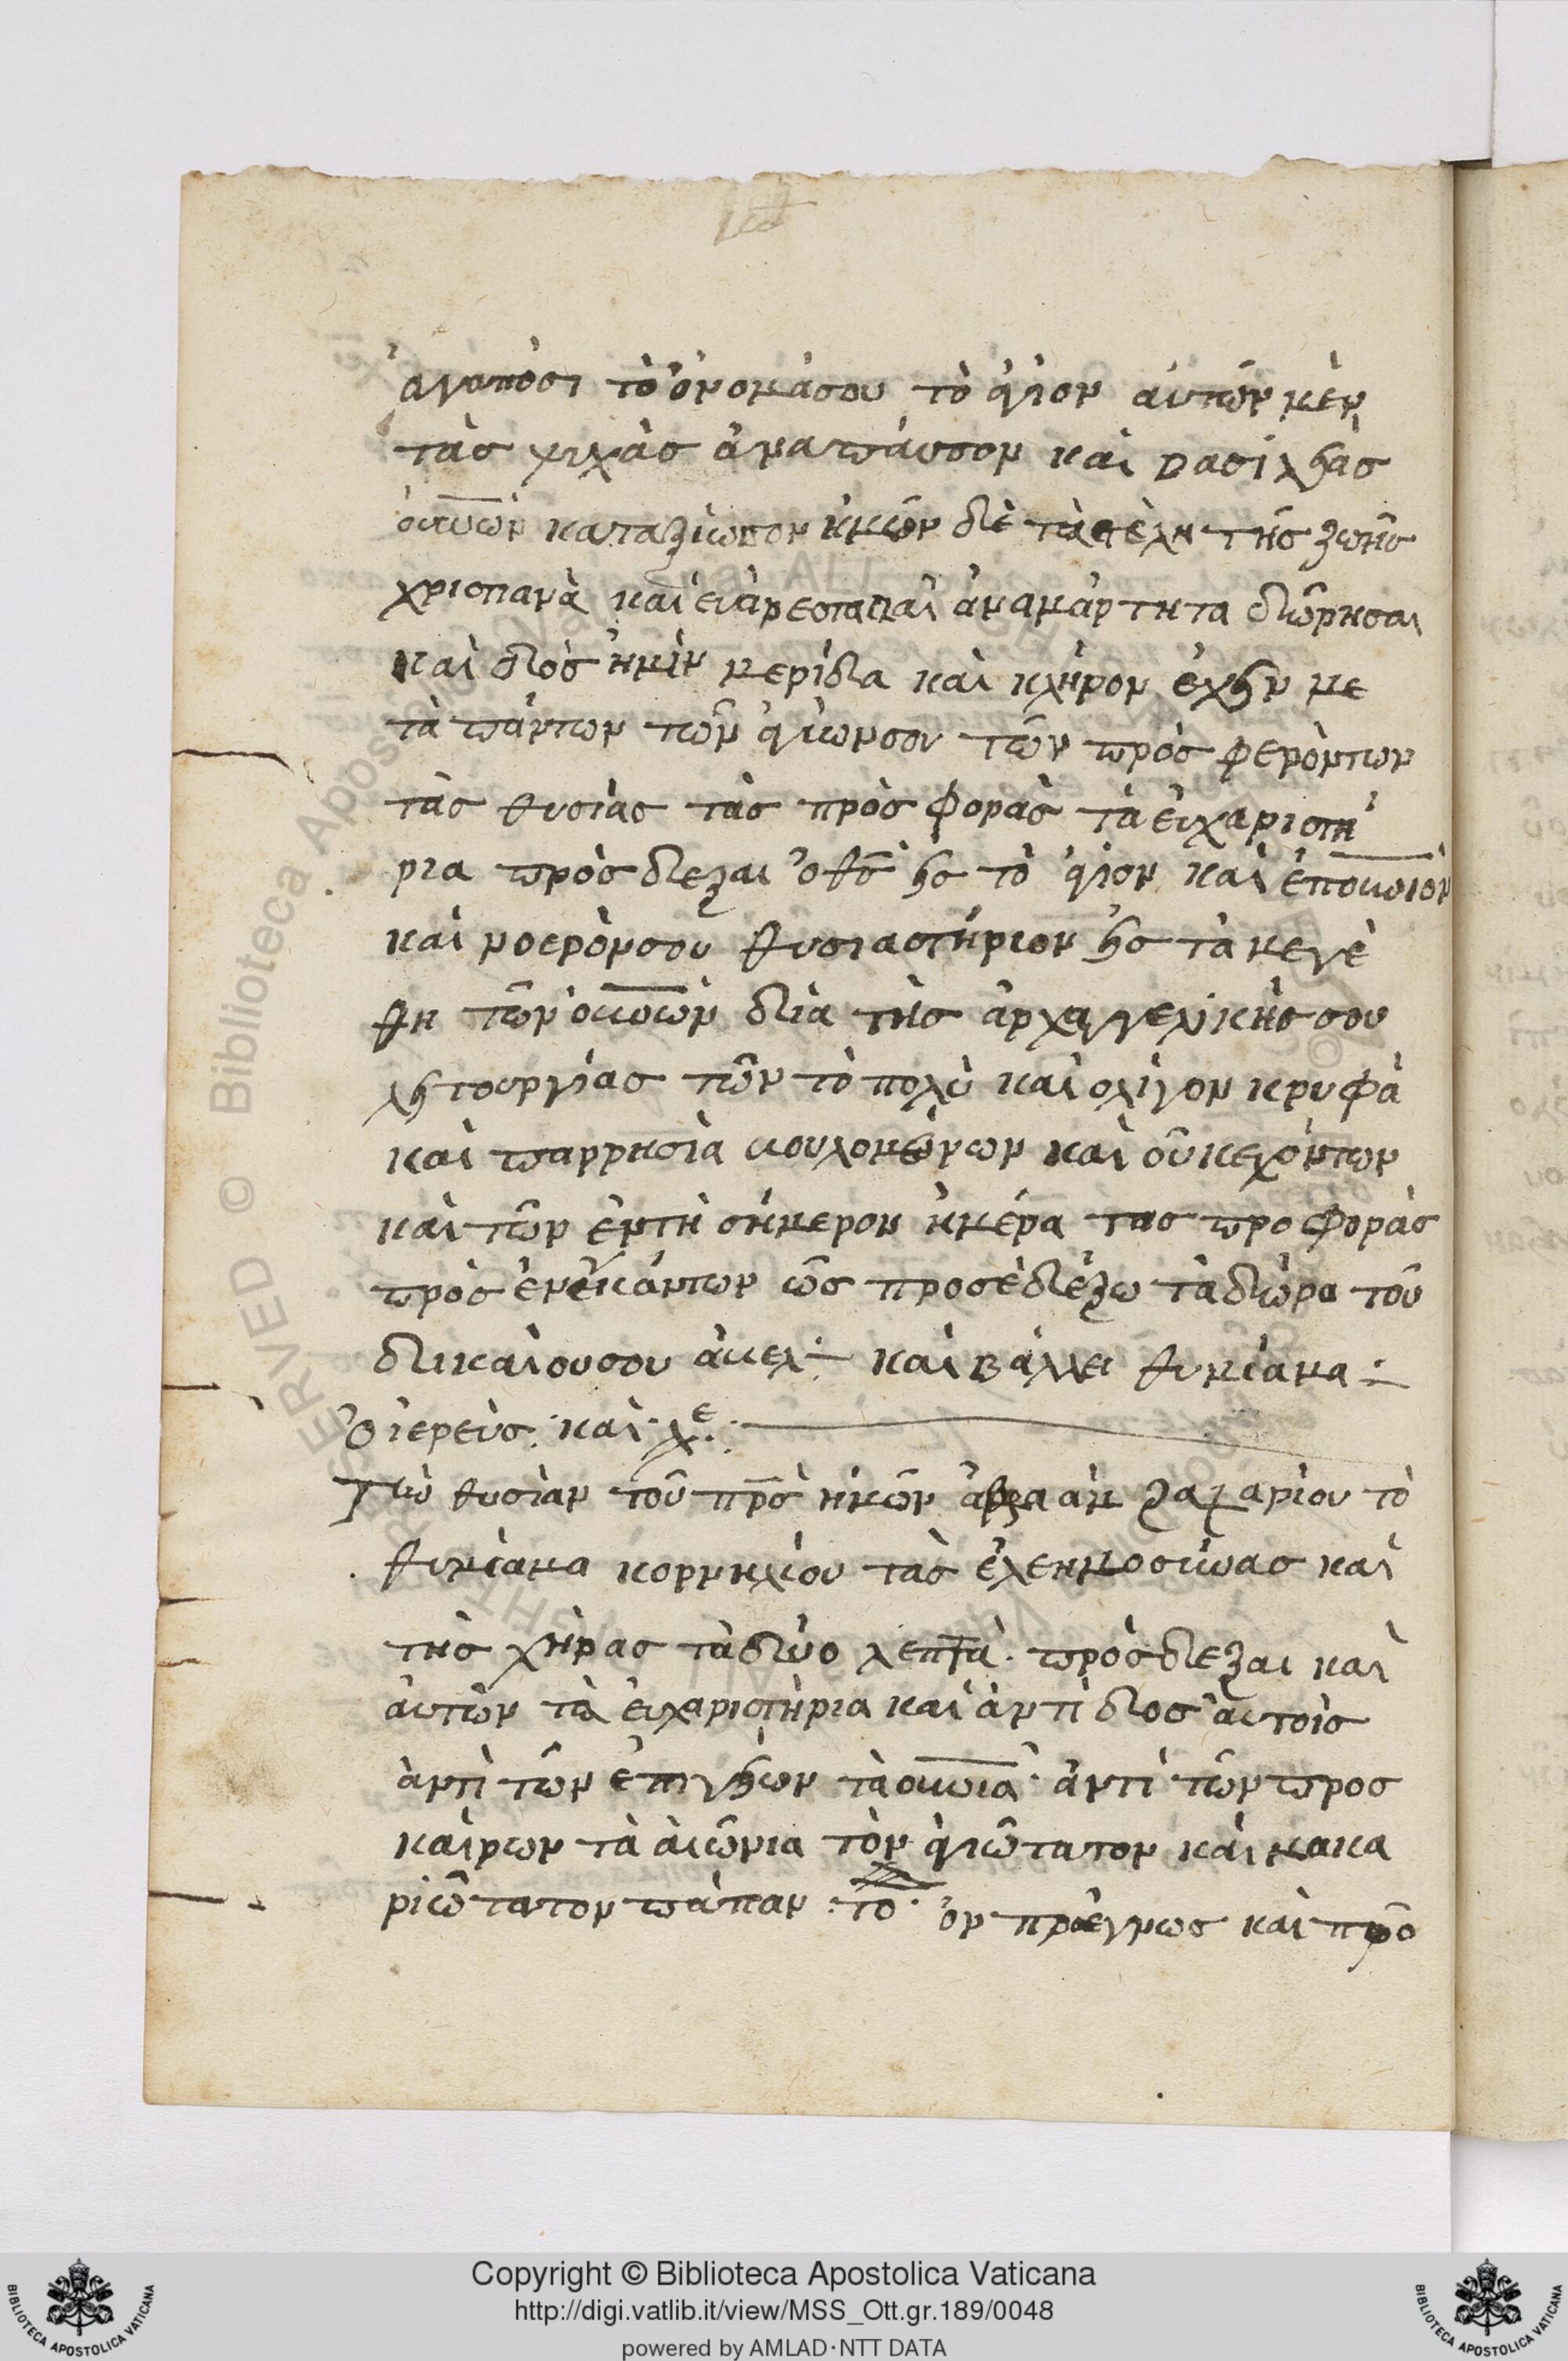 ἀγαπόσι τὸ ὄνομάσου τὸ ἅγιον αὐτῶν μὲν
τὰς ψιχὰς ἀναπάυσον καὶ βασίλείας
οὐνῶν καταξίωσον ἡμῶν δὲ τὰ τέλη τῆς ζωῆς
χριστιανὰ καὶ εὐάρεστα καὶ ἀναμάρτητα δώρησαι
καὶ δὸς ἡμὶν μερίδα καὶ κλήρον ἔχειν με
τὰ πάντων τῶν ἁγίωνσου τῶν πρὸς φερόντων
τὰς θυσίας τὰς πρὸς φορὰς τὰ εὐχαριστή
ρια πρόσδεξαι ὁ θς εἰς τὸ ἅγιον καὶ ἐπουνιον
καὶ νοερόνσου θυσιαστήριον εἰς τὰ μεγέ
θη τῶν οὐνῶν δία τῆς ἀρχαγγελικῆς σου
λειτουργίας τῶν τὸ πολὺ καὶ ολίγον κρυφὰ
καὶ παρρησία βουλομένων καὶ οὐκ εχόντων
καὶ τῶν ἐντῆ σήμερον ἡμέρα τας προσφορὰς
πρὸς ἐνεγκάντων ὡς προσεδέξω τὰ δῶρα τοῦ
δικαίουσου ἄβελ ÷ καὶ βάλλει θυμίαμα ÷
Ὁ ἱερεὺς : καὶ λε :
Τὴν θυσίαν τοῦ πρς ἡμῶν ἀβραὰμ ζαχαρίου τὸ
θυμίαμα κορνηλίου τὰς ἐλεημοσύνας καὶ
τῆς χήρας τὰ δύο λεπτά · πρόσδεξαι καὶ
ἀυτῶν τὰ εὐχαριστήρια καὶ ἀντὶ δος ἀυτοὶς
ἀντὶ τῶν ἐπιγείων τὰ οὐνια · ἀντὶ τῶν προς
καίρων τὰ αἰώνια τὸν ἁγιώτατον καὶ μακα
ριώτατον πάπαν : το · ὃν προέγνως καὶ προ
Copyright © Biblioteca Apostolica Vaticana
http://digi.vatlib.it/view/MSS_Ott.gr.189/0048
powered by AMLAD·NTT DATA